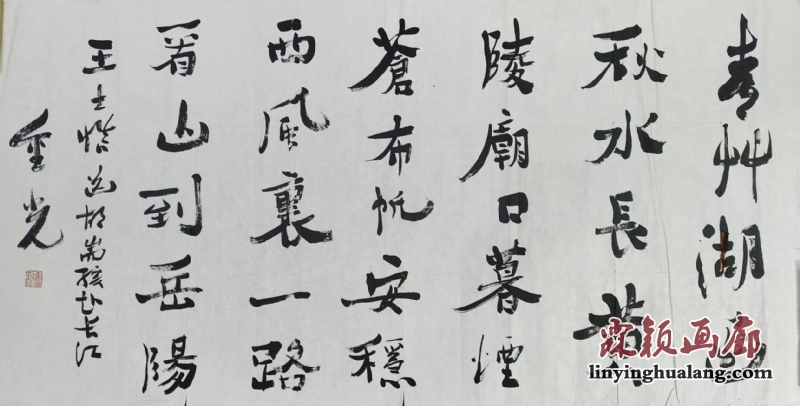 青艸湖
秋水長黃
陵廟口暮煙
蒼布帆安穩
西風裏一路
看山到岳陽
王士禛送胡耑孩赴长江
光
霖颖画廊
linyinghualang.com